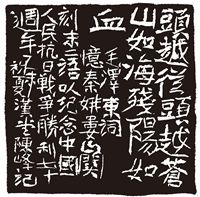 頭越從頭越蒼
山如海殘陽如
血
毛澤東詞
憶秦娥婁山關
刻末三語以紀念中國
人民抗日戰爭勝利七十
週年陳峰記